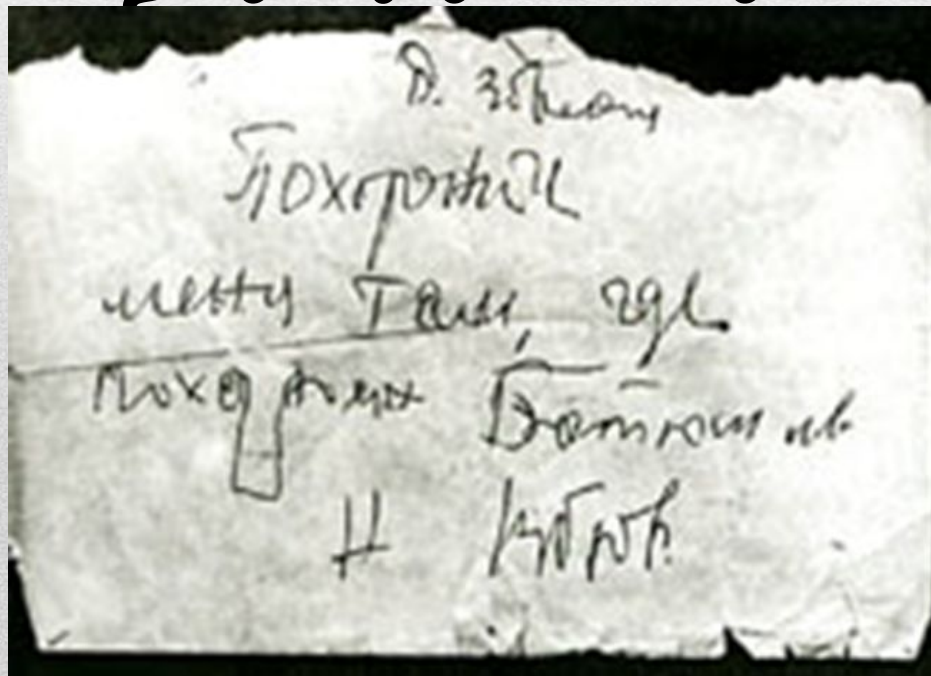 Похороните
меня там, где
похоронен Батюшков
Н Рубцов